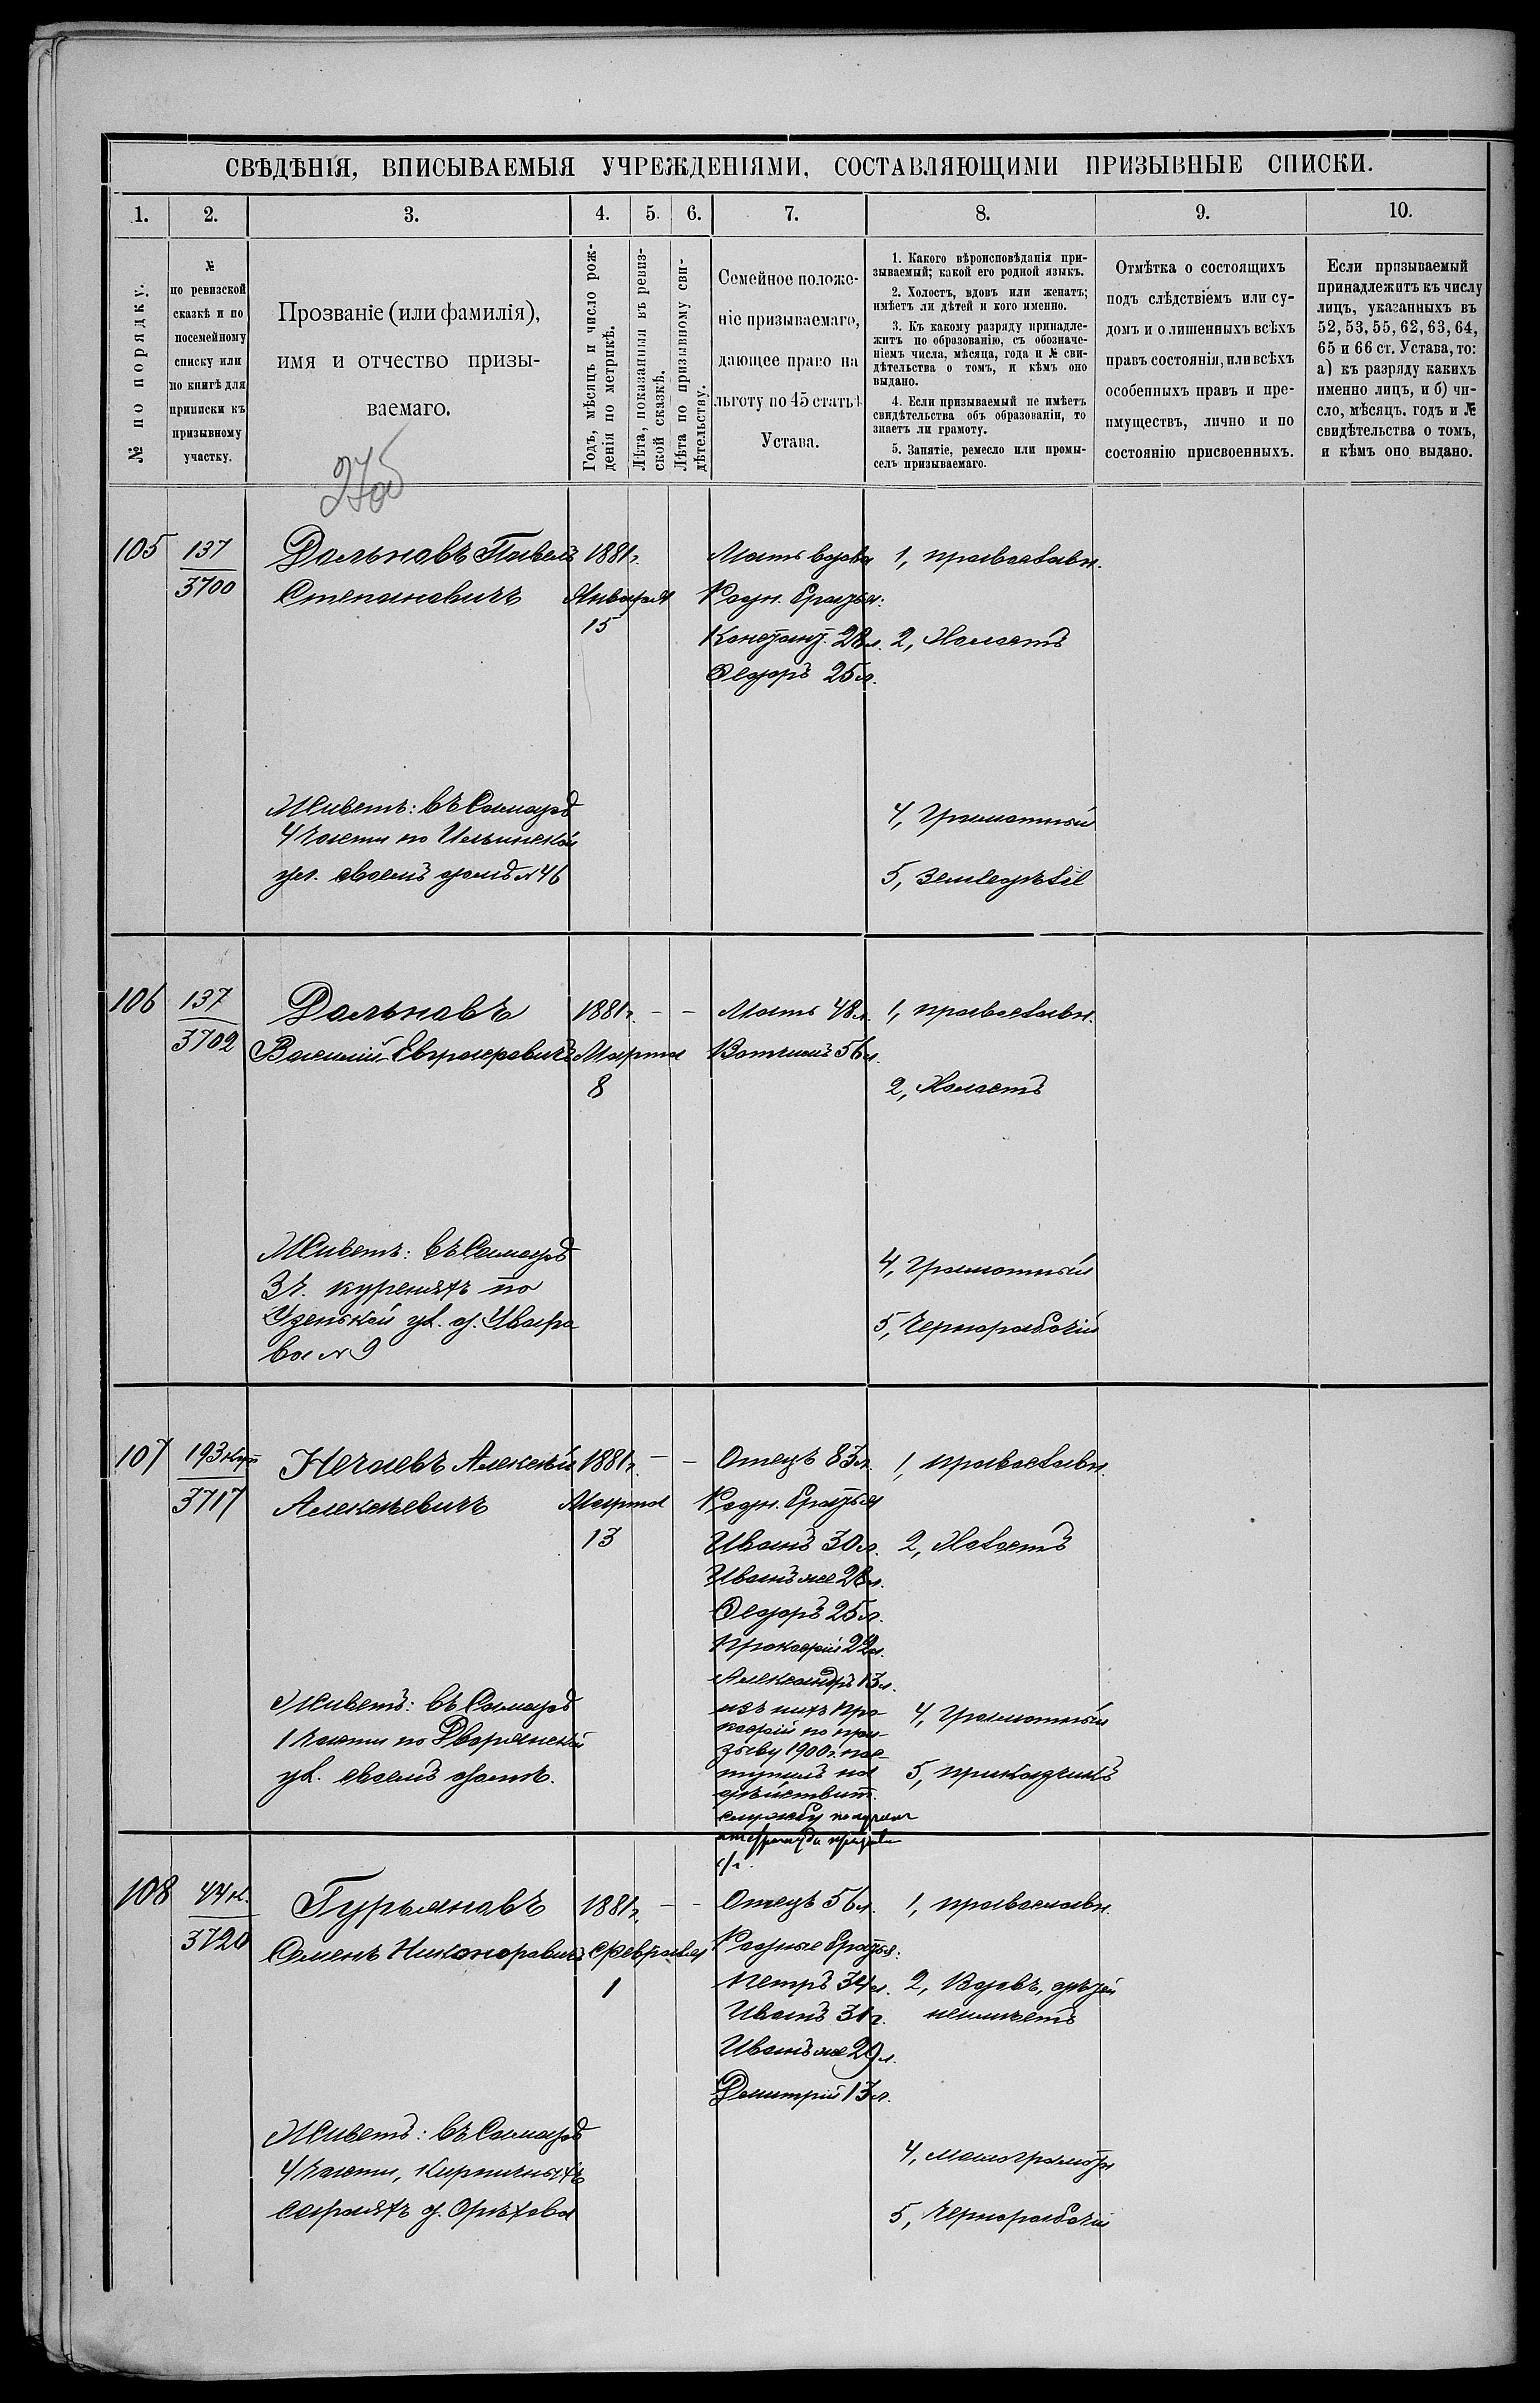 СВѢДѢНІЯ, ВПИСЫВАЕМЫЯ УЧРЕЖДЕНІЯМИ, СОСТАВЛЯЮЩИМИ ПРИЗЫВНЫЕ СПИСКИ.
1.
2.
3.
4.
5.
6.
7.
8.
9.
10.
№ по порядку.
№
по ревизской
сказкѣ и по
посемейному
списку или
по книгѣ для
приписки къ
призывному
участку.
Прозваніе (или фамилія),
имя и отчество призы-
ваемаго.
Годъ, мѣсяцъ и число рож-
денія по метрикѣ.
Лѣта, показанныя въ ревиз-
ской сказкѣ.
Лѣта по призывному сви-
дѣтельству.
Семейное положе-
ніе призываемаго,
дающее право на
льготу по 45 статьѣ
Устава.
1. Какого вѣроисповѣданія при-
зываемый; какой его родной языкъ.
2. Холостъ, вдовъ или женатъ;
имѣетъ ли дѣтей и кого именно.
3. Къ какому разряду принадле-
житъ по образованію, съ обозначе-
ніемъ числа, мѣсяца, года и № сви-
дѣтельства о томъ, и кѣмъ оно
выдано.
4. Если призываемый не имѣетъ
свидѣтельства объ образованіи, то
знаетъ ли грамоту.
5. Занятіе, ремесло или промы-
селъ призываемаго.
Отмѣтка о состоящихъ
подъ слѣдствіемъ или су-
домъ и о лишенныхъ всѣхъ
правъ состоянія, или всѣхъ
особенныхъ правъ и пре-
имуществъ, лично и по
состоянію присвоенныхъ.
Если призываемый
принадлежитъ къ числу
лицъ, указанныхъ въ
52, 53, 55, 62, 63, 64,
65 и 66 ст. Устава, то:
а) къ разряду какихъ
именно лицъ, и б) чи-
сло, мѣсяцъ, годъ и №
свидѣтельства о томъ,
и кѣмъ оно выдано.
105
137
3700
Дольновъ Павелъ
Степановичъ
1881 г.
Января
15
Мать вдова
Родн. братья:
Констант. 28 л.
Федоръ 25 л.
1, православн.
2, Холостъ
Живетъ: въ Самарѣ
4 части по Ильинской
ул. своемъ домѣ № 46
4, Грамотный
5, Земледѣліе
106
137
3702
Дольновъ
Василій Евграфовичъ
1881 г. — —
Марта
8
Мать 48 л.
Вотчимъ 56 л.
1, православн.
2, Холостъ
Живетъ: въ Самарѣ
3 ч. куреняхъ по
Узенькой ул. д. Уваро
ва № 9
4, Грамотный
5, Чернорабочій
107
193 куп
3717
Нечаевъ Алексѣй
Алексѣевичъ
1881 г. — —
Марта
13
Отецъ 83 л.
Родн. братья
Иванъ 30 л.
Иванъ же 28 л.
Федоръ 25 л.
Прокофій 22 л.
Александръ 13 л.
изъ нихъ Про-
кофій по при-
зыву 1900 г. пос-
тупилъ на
дѣйствит.
службу
1, православн.
2, Холостъ
Живетъ: въ Самарѣ
1 части по Дворянской
ул. своемъ домѣ.
4, Грамотный
5, приказчикъ
108
44 к.
3720
Гурьяновъ
Семенъ Никоноровичъ
1881 г. — —
Февраля
1
Отецъ 56 л.
Родные братья:
Петръ 34 л.
Иванъ 31 г.
Иванъ же 29 л.
Дмитрій 13 л.
1, православн.
2, Вдовъ, дѣтей
неимѣетъ
Живетъ: въ Самарѣ
4 части, Кирпичныхъ
сараяхъ д. Орѣхова
4, малограмотн
5, Чернорабочій